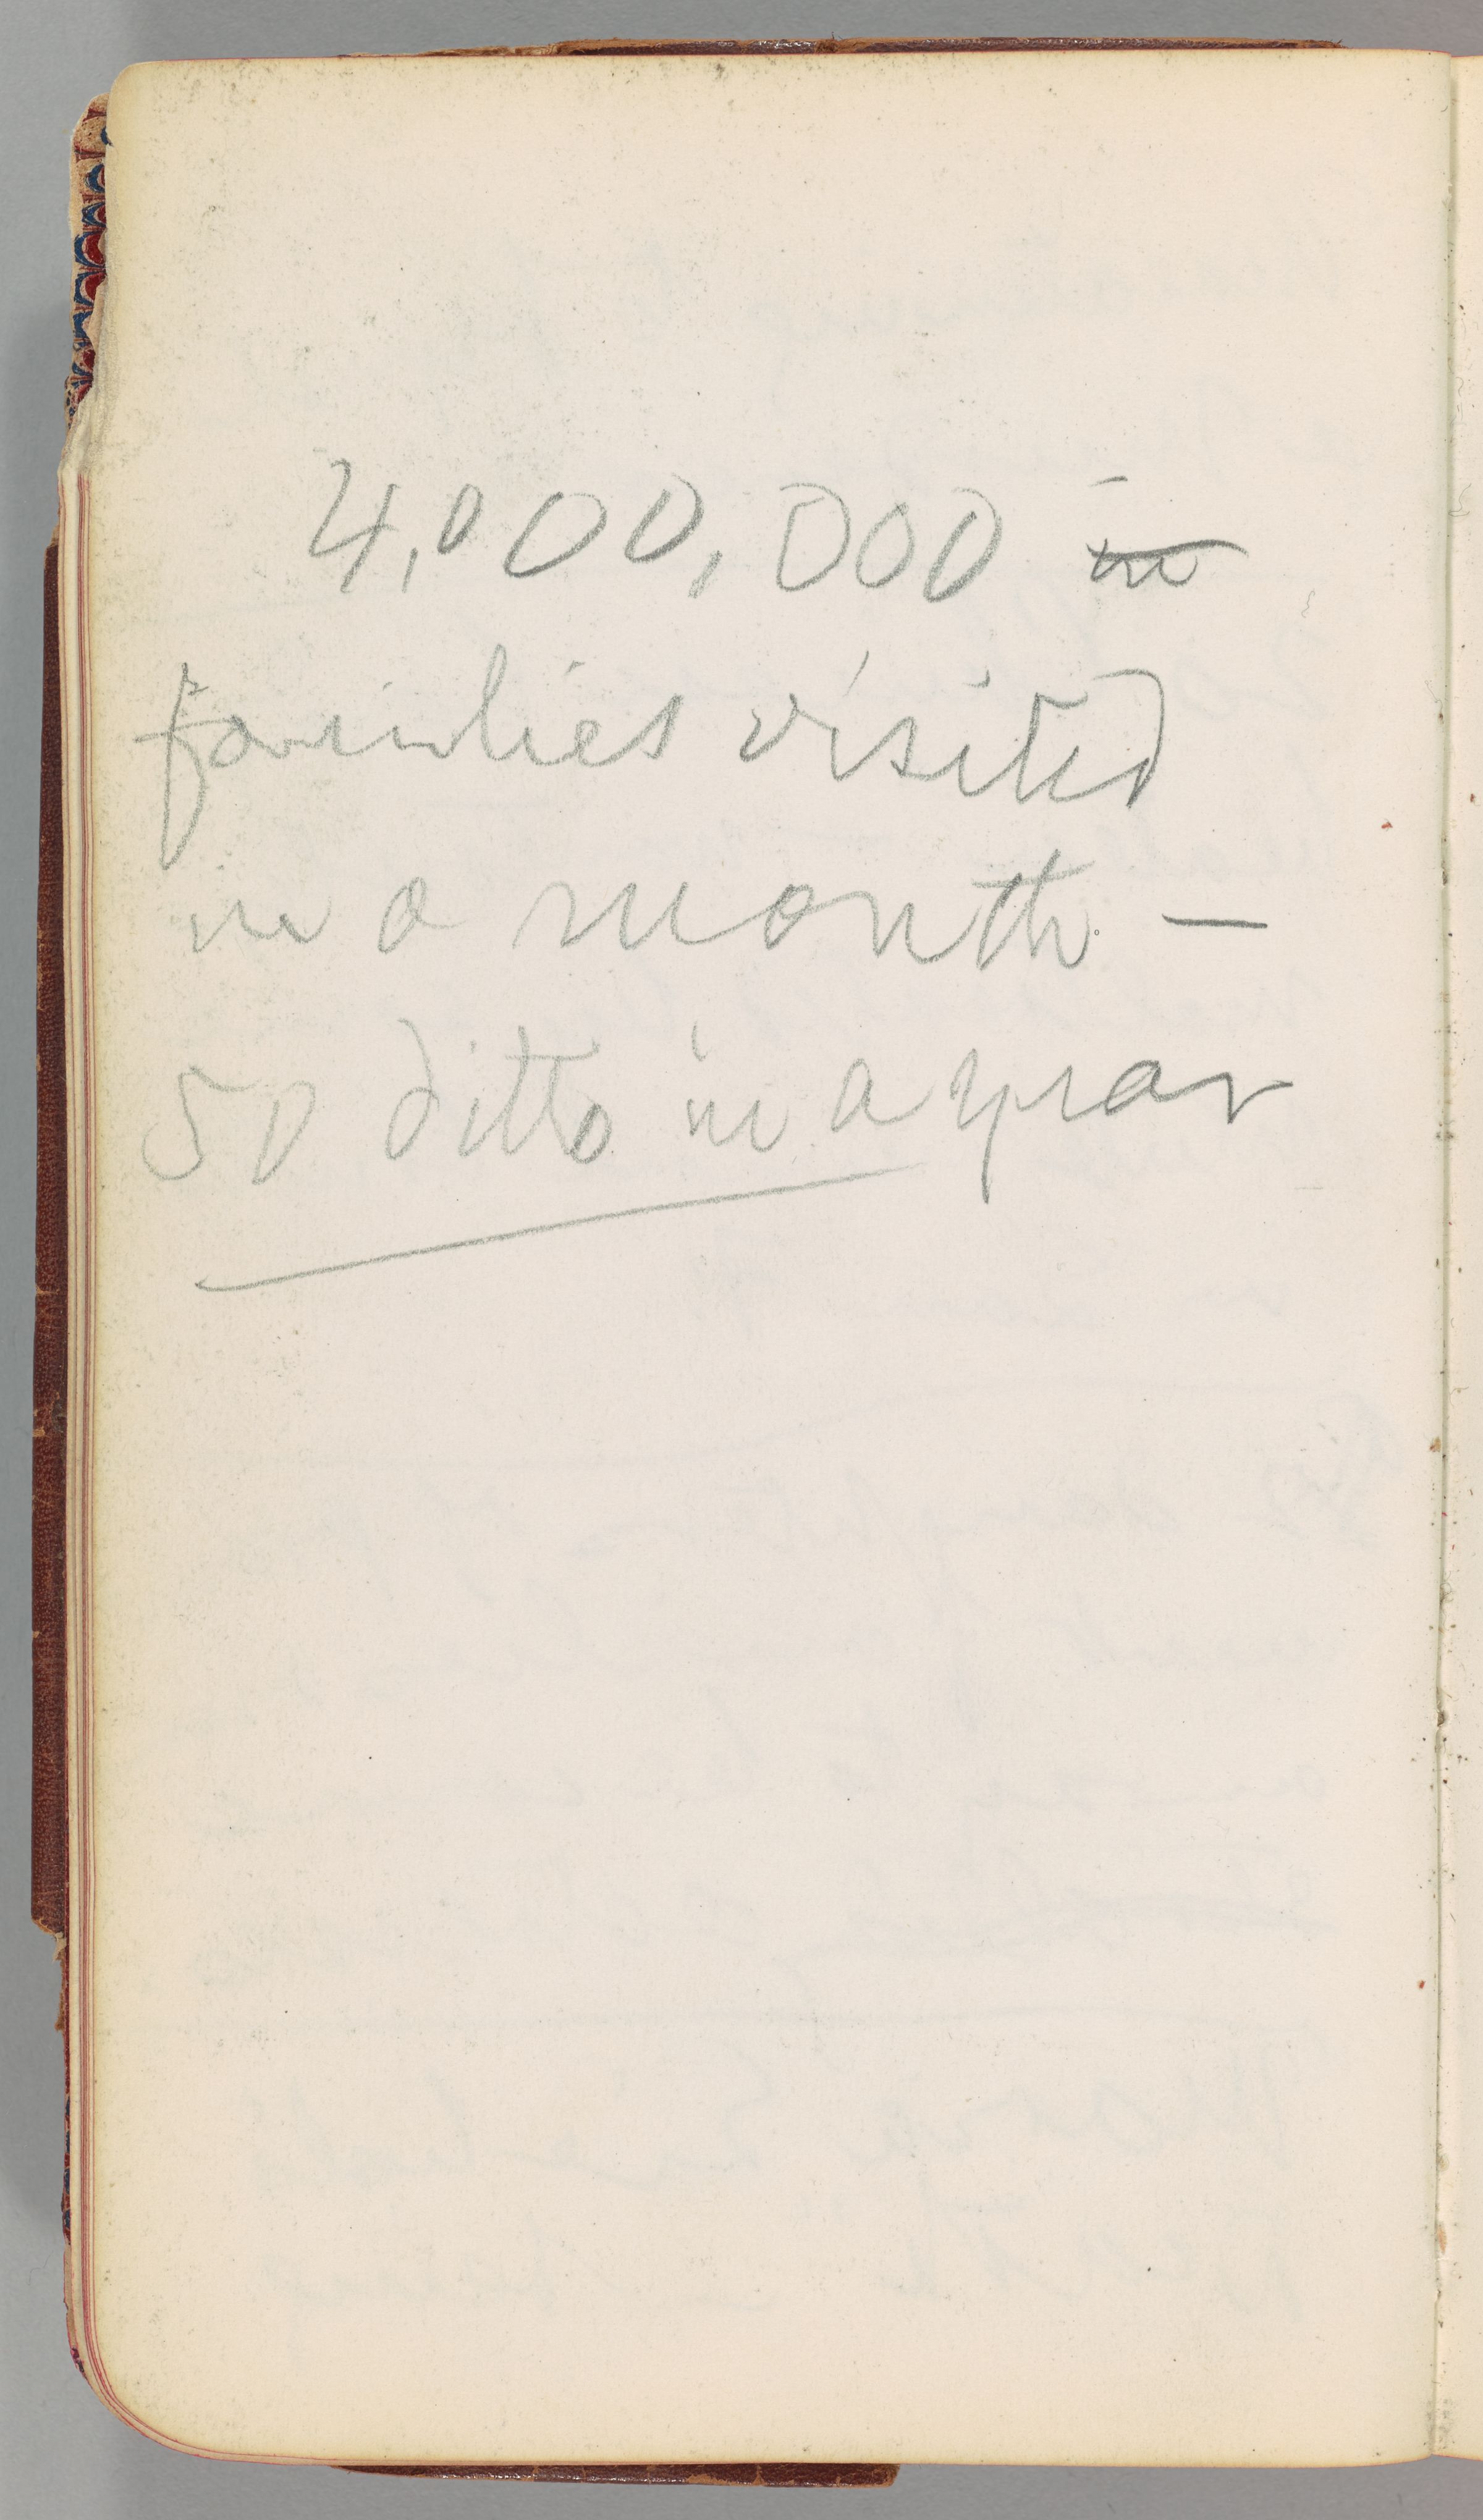 4,000,000 in
families visited
in a month —
50 ditto in a year